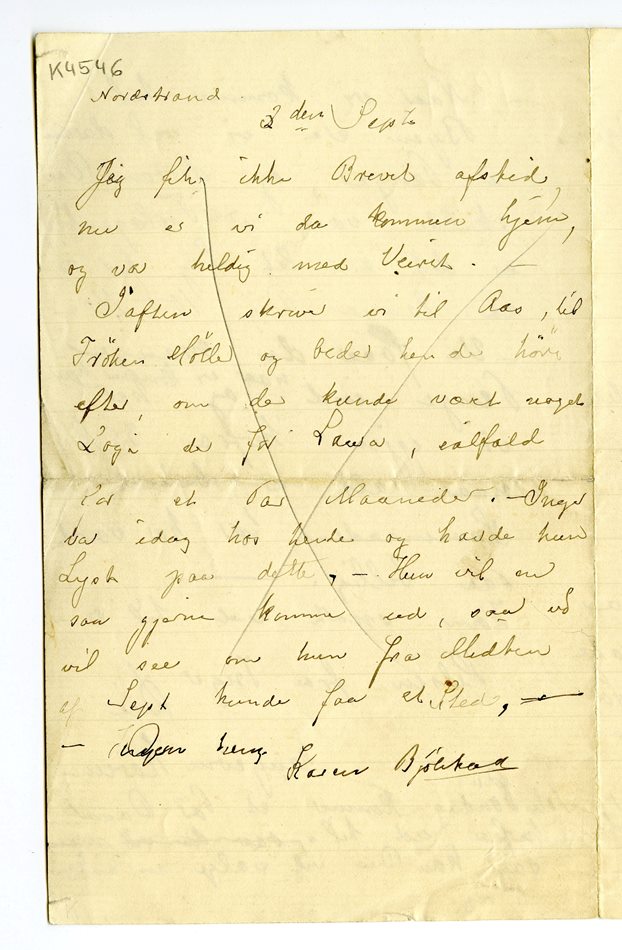 K4546
Nordstrand
2den Sept
Jeg fik ikke Brevet afsted,
nu er vi da kommen hjem,
og var heldig med Veiret. –
I aften skriver vi til Aas, til
Frøken Møller og beder hende høre
efter, om der kunde vært noget
Logi der for Laura, ialfald
for et Par Maaneder. – Inga
var idag hos hende og havde hun
Lyst paa dette, – Hun vil en
saa gjerne komme ud, saa vi
vil see om hun fra Midten
af Sept kunde faa et Sted, –
– Karen Bjølstad